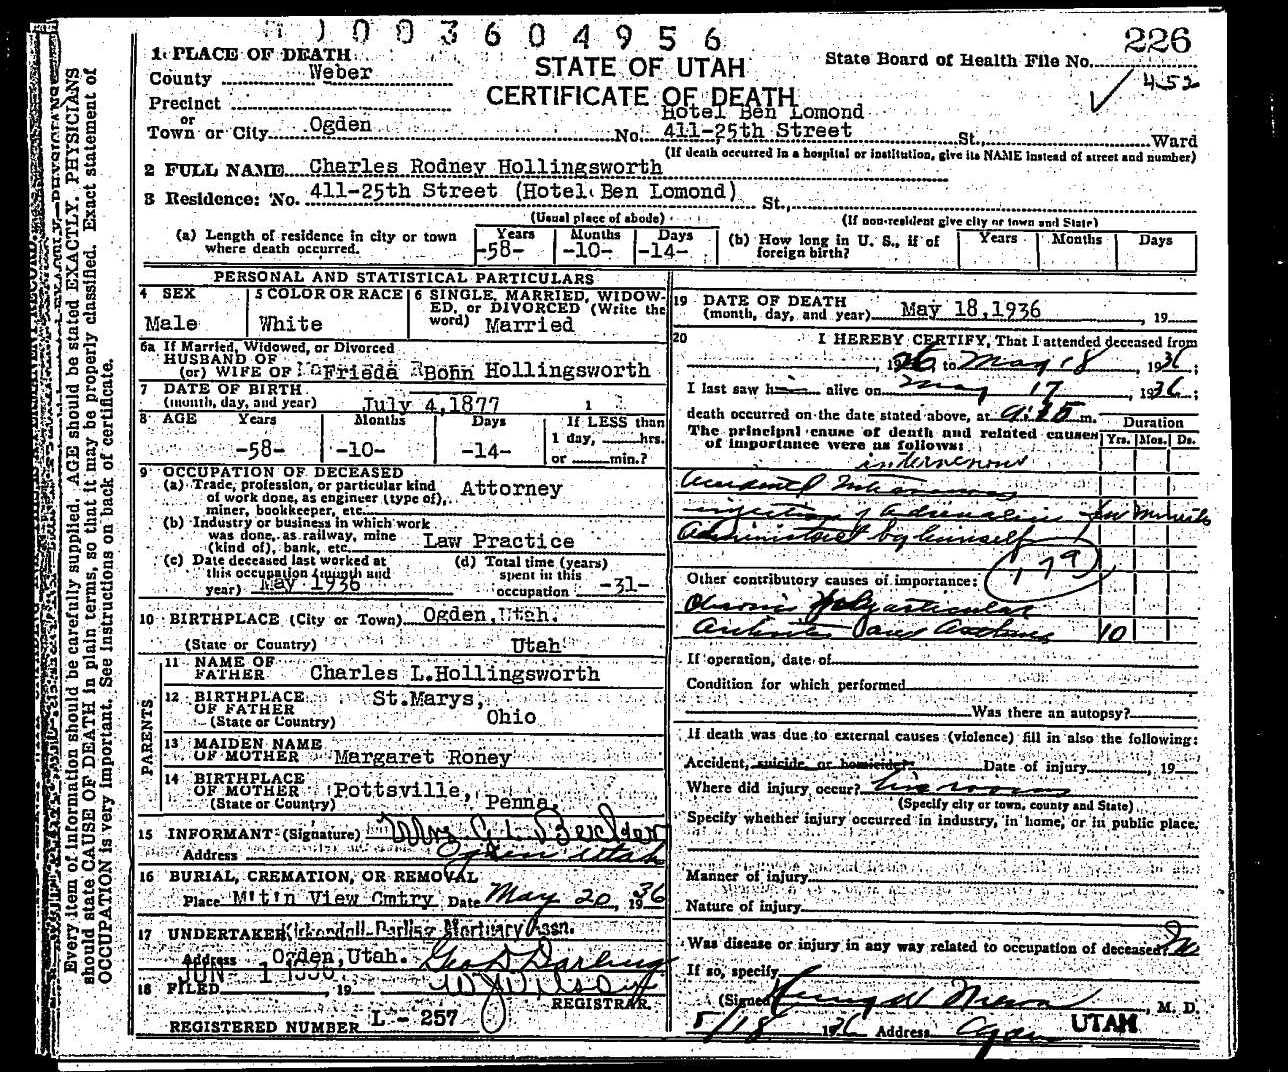 1003604956
226
1. PLACE OF DEATH
County Weber
STATE OF UTAH
State Board of Health File No.
452
Precinct
CERTIFICATE OF DEATH
or
Hotel Ben Lomond
Town or City Ogden No. 411-25th Street St., Ward
(If death occurred in a hospital or institution, give its NAME instead of street and number)
2 FULL NAME Charles Rodney Hollingsworth
3 Residence: No. 411-25th Street (Hotel Ben Lomond) St.,
(Usual place of abode) (If non-resident give city or town and State)
(a) Length of residence in city or town where death occurred. Years -58- Months -10- Days -14-
(b) How long in U. S., if of foreign birth? Years Months Days
PERSONAL AND STATISTICAL PARTICULARS
4 SEX
Male
5 COLOR OR RACE
White
6 SINGLE, MARRIED, WIDOW-
ED, or DIVORCED (Write the
word) Married
6a If Married, Widowed, or Divorced
HUSBAND OF
(or) WIFE OF Frieda Bohn Hollingsworth
7 DATE OF BIRTH
(month, day, and year) July 4,1877
8 AGE Years Months Days If LESS than
-58- -10- -14- 1 day, hrs.
or min.?
9 OCCUPATION OF DECEASED
(a) Trade, profession, or particular kind
of work done, as engineer (type of),
miner, bookkeeper, etc. Attorney
(b) Industry or business in which work
was done, as railway, mine
(kind of), bank, etc. Law Practice
(c) Date deceased last worked at
this occupation (month and
year) May 1936
(d) Total time (years)
spent in this
occupation -31-
10 BIRTHPLACE (City or Town) Ogden,Utah.
(State or Country) Utah
PARENTS
11 NAME OF
FATHER Charles L.Hollingsworth
12 BIRTHPLACE
OF FATHER St.Marys,
(State or Country) Ohio
13 MAIDEN NAME
OF MOTHER Margaret Roney
14 BIRTHPLACE
OF MOTHER Pottsville,
(State or Country) Penna.
15 INFORMANT (Signature) Mrs G. L. Beilder
Address Ogden Utah
16 BURIAL, CREMATION, OR REMOVAL
Place M't'n View Cmtry Date May 20, 1936
17 UNDERTAKER Kirkendall-Darling Mortuary Assn.
Address Ogden,Utah. Geo D Darling
18 FILED JUN - 1 1936, 19
REGISTRAR.
REGISTERED NUMBER L - 257
19 DATE OF DEATH
(month, day, and year) May 18,1936, 19
20 I HEREBY CERTIFY, That I attended deceased from
, 1926, to May 18, 1936;
I last saw him alive on May 17, 1936;
death occurred on the date stated above, at 9:25 m.
The principal cause of death and related causes
of importance were as follows:
Duration
Yrs. Mos. Ds.
intervenous
Accidental
injection of adrenalin few minutes
Administered by himself
179
Other contributory causes of importance:
Chronic Polyarticular
Arthritis and Asthma 10
If operation, date of
Condition for which performed
Was there an autopsy?
If death was due to external causes (violence) fill in also the following:
Accident, suicide, or homicide? Date of injury, 19
Where did injury occur? his rooms
(Specify city or town, county and State)
Specify whether injury occurred in industry, in home, or in public place.
Manner of injury
Nature of injury
Was disease or injury in any way related to occupation of deceased? No
If so, specify
(Signed) M. D.
5/18 1936 Address Ogden UTAH
Every item of information should be carefully supplied. AGE should be stated EXACTLY. PHYSICIANS
should state CAUSE OF DEATH in plain terms, so that it may be properly classified. Exact statement of
OCCUPATION is very important. See instructions on back of certificate.